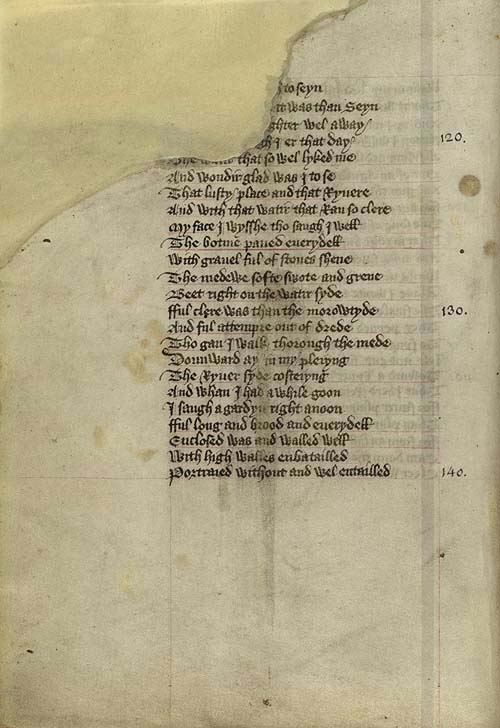 to seyn
it was than Seyn
ghter wel away
h I er that day 120.
that so wel lyked me
And wondir glad was I to se
That lusty place and that Ryuere
And with that watir that Ran so clere
My face I wysshe tho saugh I well
The botme paued euerydell
With grauel ful of stones shene
The medewe softe swote and grene
Beet right on the watir syde
fful clere was than the morowtyde 130.
And ful attempre out of drede
Tho gan I walk thorough the mede
Dounward ay in my pleiyng
The Ryuer syde costeiyng
And whan I had a while goon
I saugh a gardyn right anoon
fful long and brood and euerydell
Enclosed was and walled well
With high walles enbatailled
Portraied without and wel entailled 140.